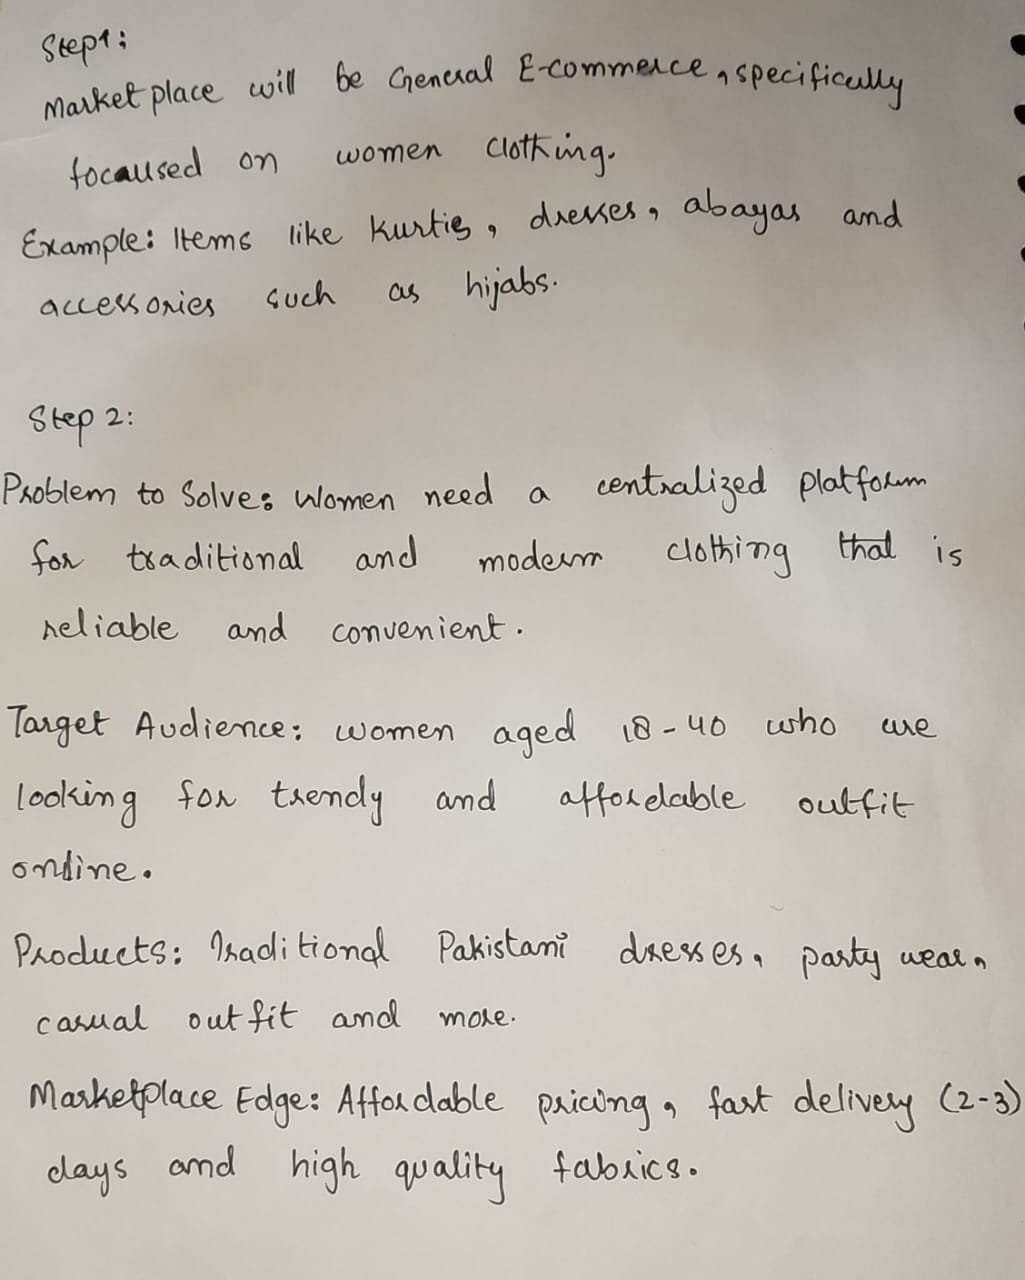 Step1:
Marketplace will be General E-commerce, specifically
focaused on women clothing.
Example: Items like Kurtis, dresses, abayas and
accessories such as hijabs.
Step 2:
Problem to Solve: Women need a centralized platform
for traditional and modern clothing that is
reliable and convenient.
Target Audience: women aged 18-40 who are
looking for trendy and affordable outfit
online.
Products: Traditional Pakistani dresses, party wear,
casual outfit and more.
Marketplace Edge: Affordable pricing, fast delivery (2-3)
days and high quality fabrics.